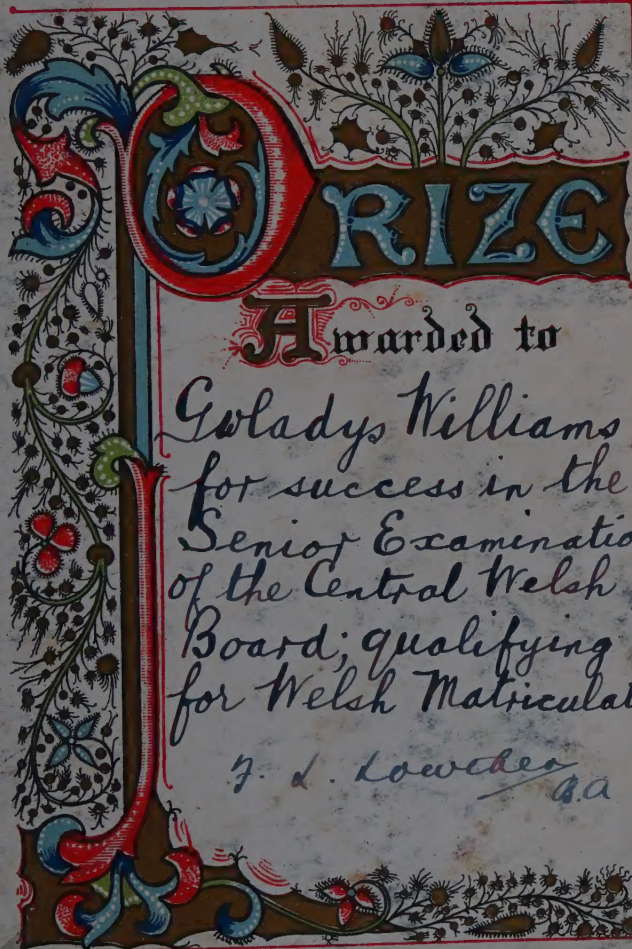 PRIZE
Awarded to
Gwladys Williams
for success in the
Senior Examinatio
of the Central Welsh
Board; qualifying
for Welsh Matriculat
F. L. Lowther
B.A